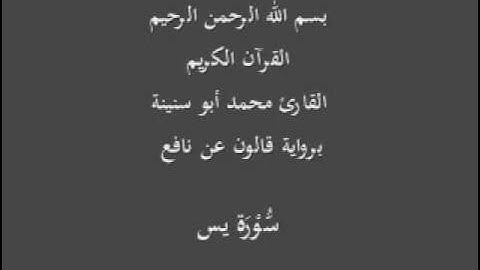 بسم الله الرحمن الرحيم
القرآن الكريم
القارئ محمد أبو سنينة
برواية قالون عن نافع
سُّوْرَة يس